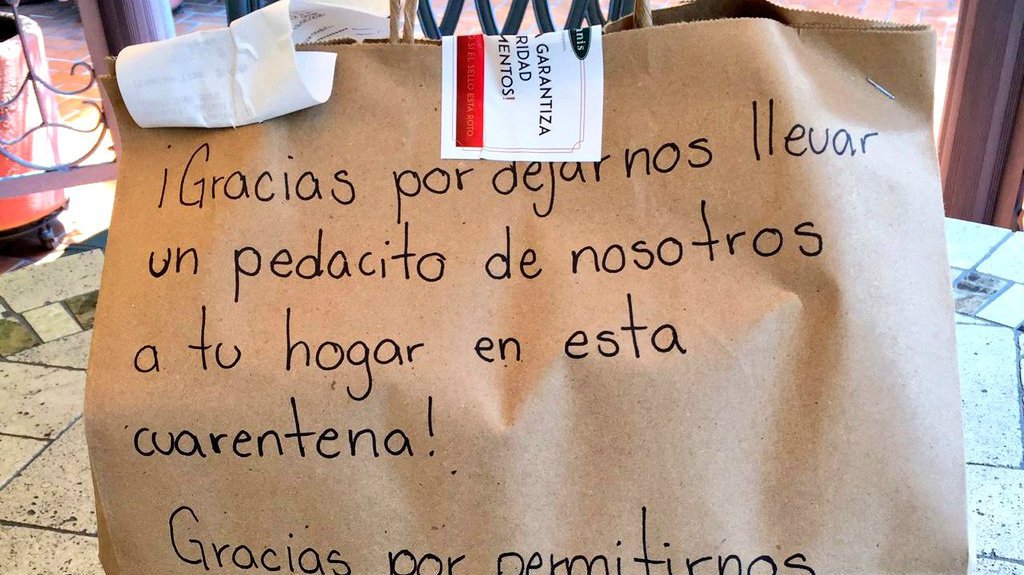 GARANTIZA
RIDAD
MENTOS!
SI EL SELLO ESTA ROTO.
nis
¡Gracias por dejarnos llevar
un pedacito de nosotros
a tu hogar en esta
cuarentena!
Gracias por permitirnos